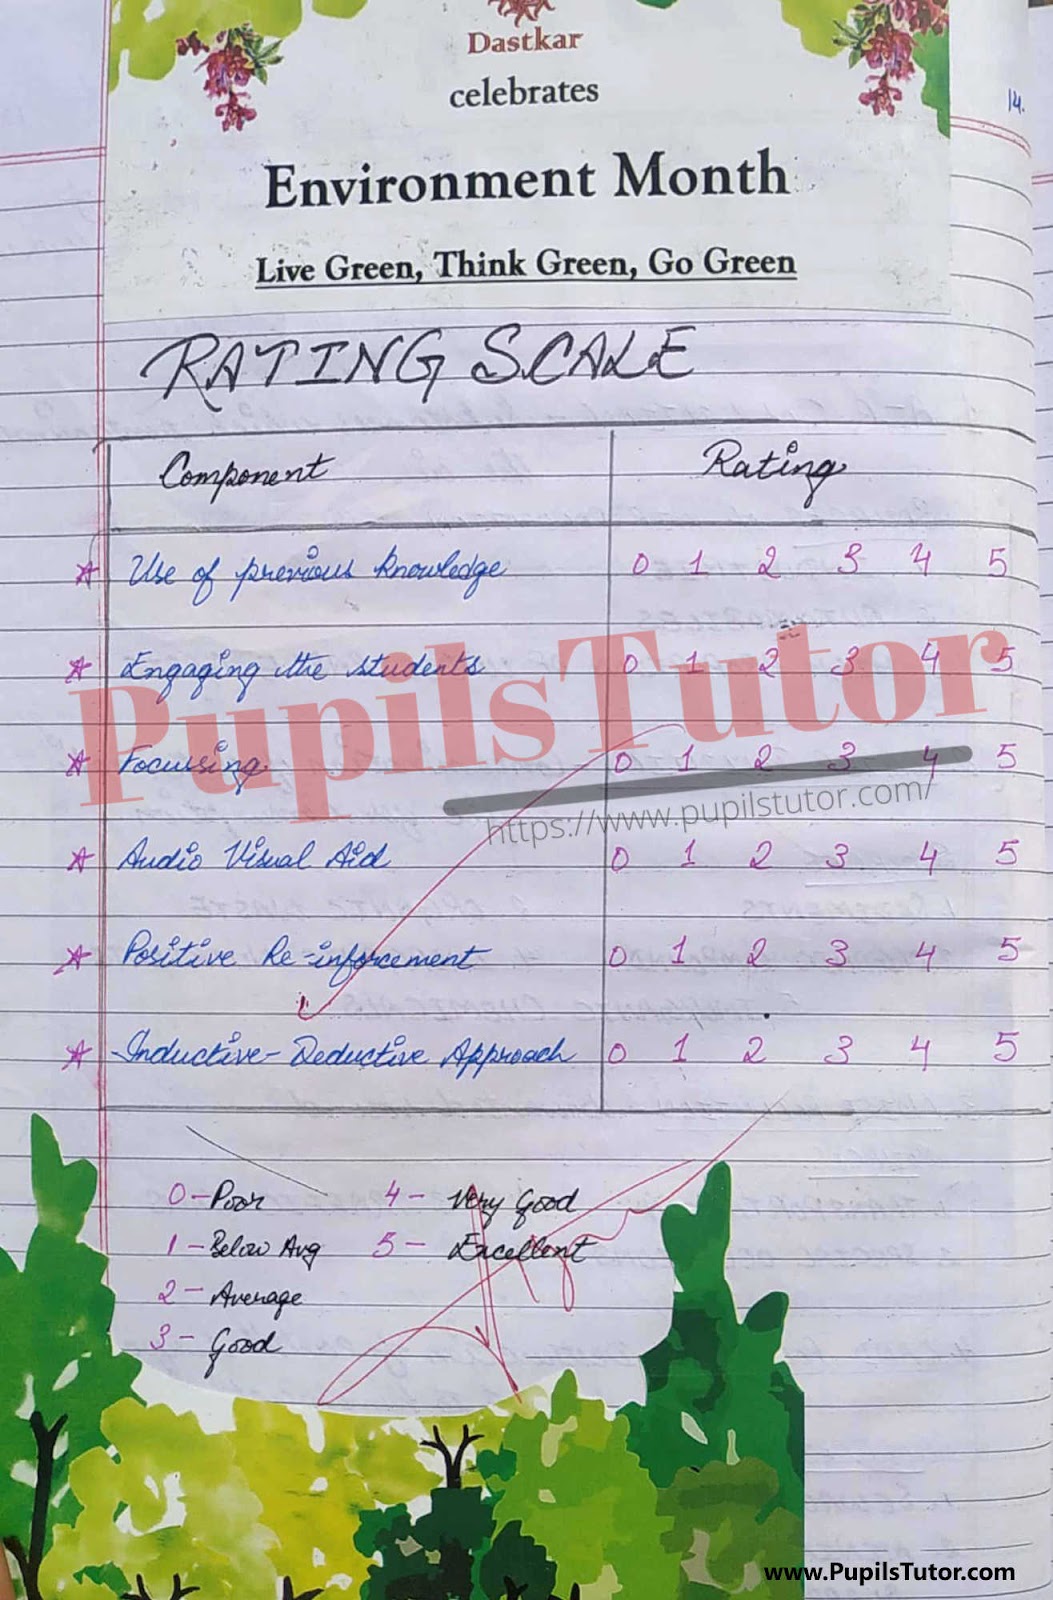 Dastkar
celebrates
14.
Environment Month
Live Green, Think Green, Go Green
RATING SCALE
Component Rating
Use of previous knowledge 0 1 2 3 4 5
Engaging the students 0 1 2 3 4 5
Focussing 0 1 2 3 4 5
PupilsTutor
https://www.pupilstutor.com/
Audio Visual Aid 0 1 2 3 4 5
Positive Re-inforcement 0 1 2 3 4 5
Inductive-Deductive Approach 0 1 2 3 4 5
0-Poor 4- Very Good
1-Below Avg 5- Excellent
2- Average
3- Good
www.PupilsTutor.com